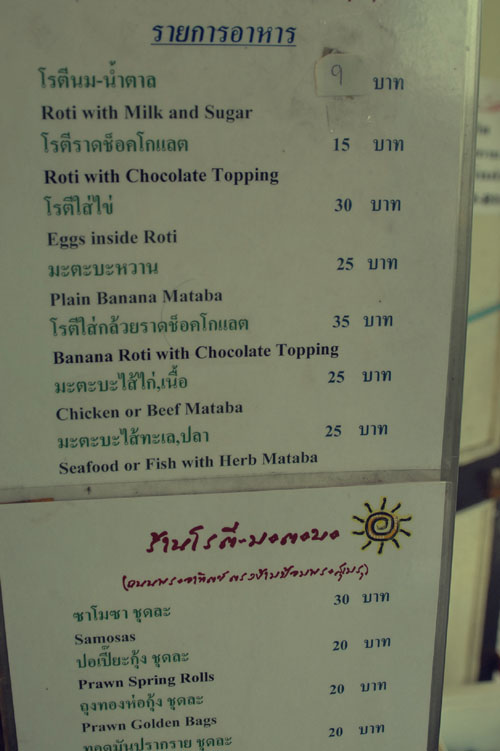 รายการอาหาร
โรตีนม-น้ำตาล 9 บาท
Roti with Milk and Sugar
โรตีราดช็อคโกแลต 15 บาท
Roti with Chocolate Topping
โรตีใส่ไข่ 30 บาท
Eggs inside Roti
มะตะบะหวาน 25 บาท
Plain Banana Mataba
โรตีใส่กล้วยราดช็อคโกแลต 35 บาท
Banana Roti with Chocolate Topping
มะตะบะไส้ไก่,เนื้อ 25 บาท
Chicken or Beef Mataba
มะตะบะไส้ทะเล,ปลา 25 บาท
Seafood or Fish with Herb Mataba
ร้านโรตี-มะตะบะ
(ถนนพระอาทิตย์ ตรงข้ามป้อมพระสุเมรุ)
ซาโมซา ชุดละ 30 บาท
Samosas
ปอเปี๊ยะกุ้ง ชุดละ 20 บาท
Prawn Spring Rolls
ถุงทองห่อกุ้ง ชุดละ 20 บาท
Prawn Golden Bags
ทอดมันปลากราย ชุดละ 20 บาท